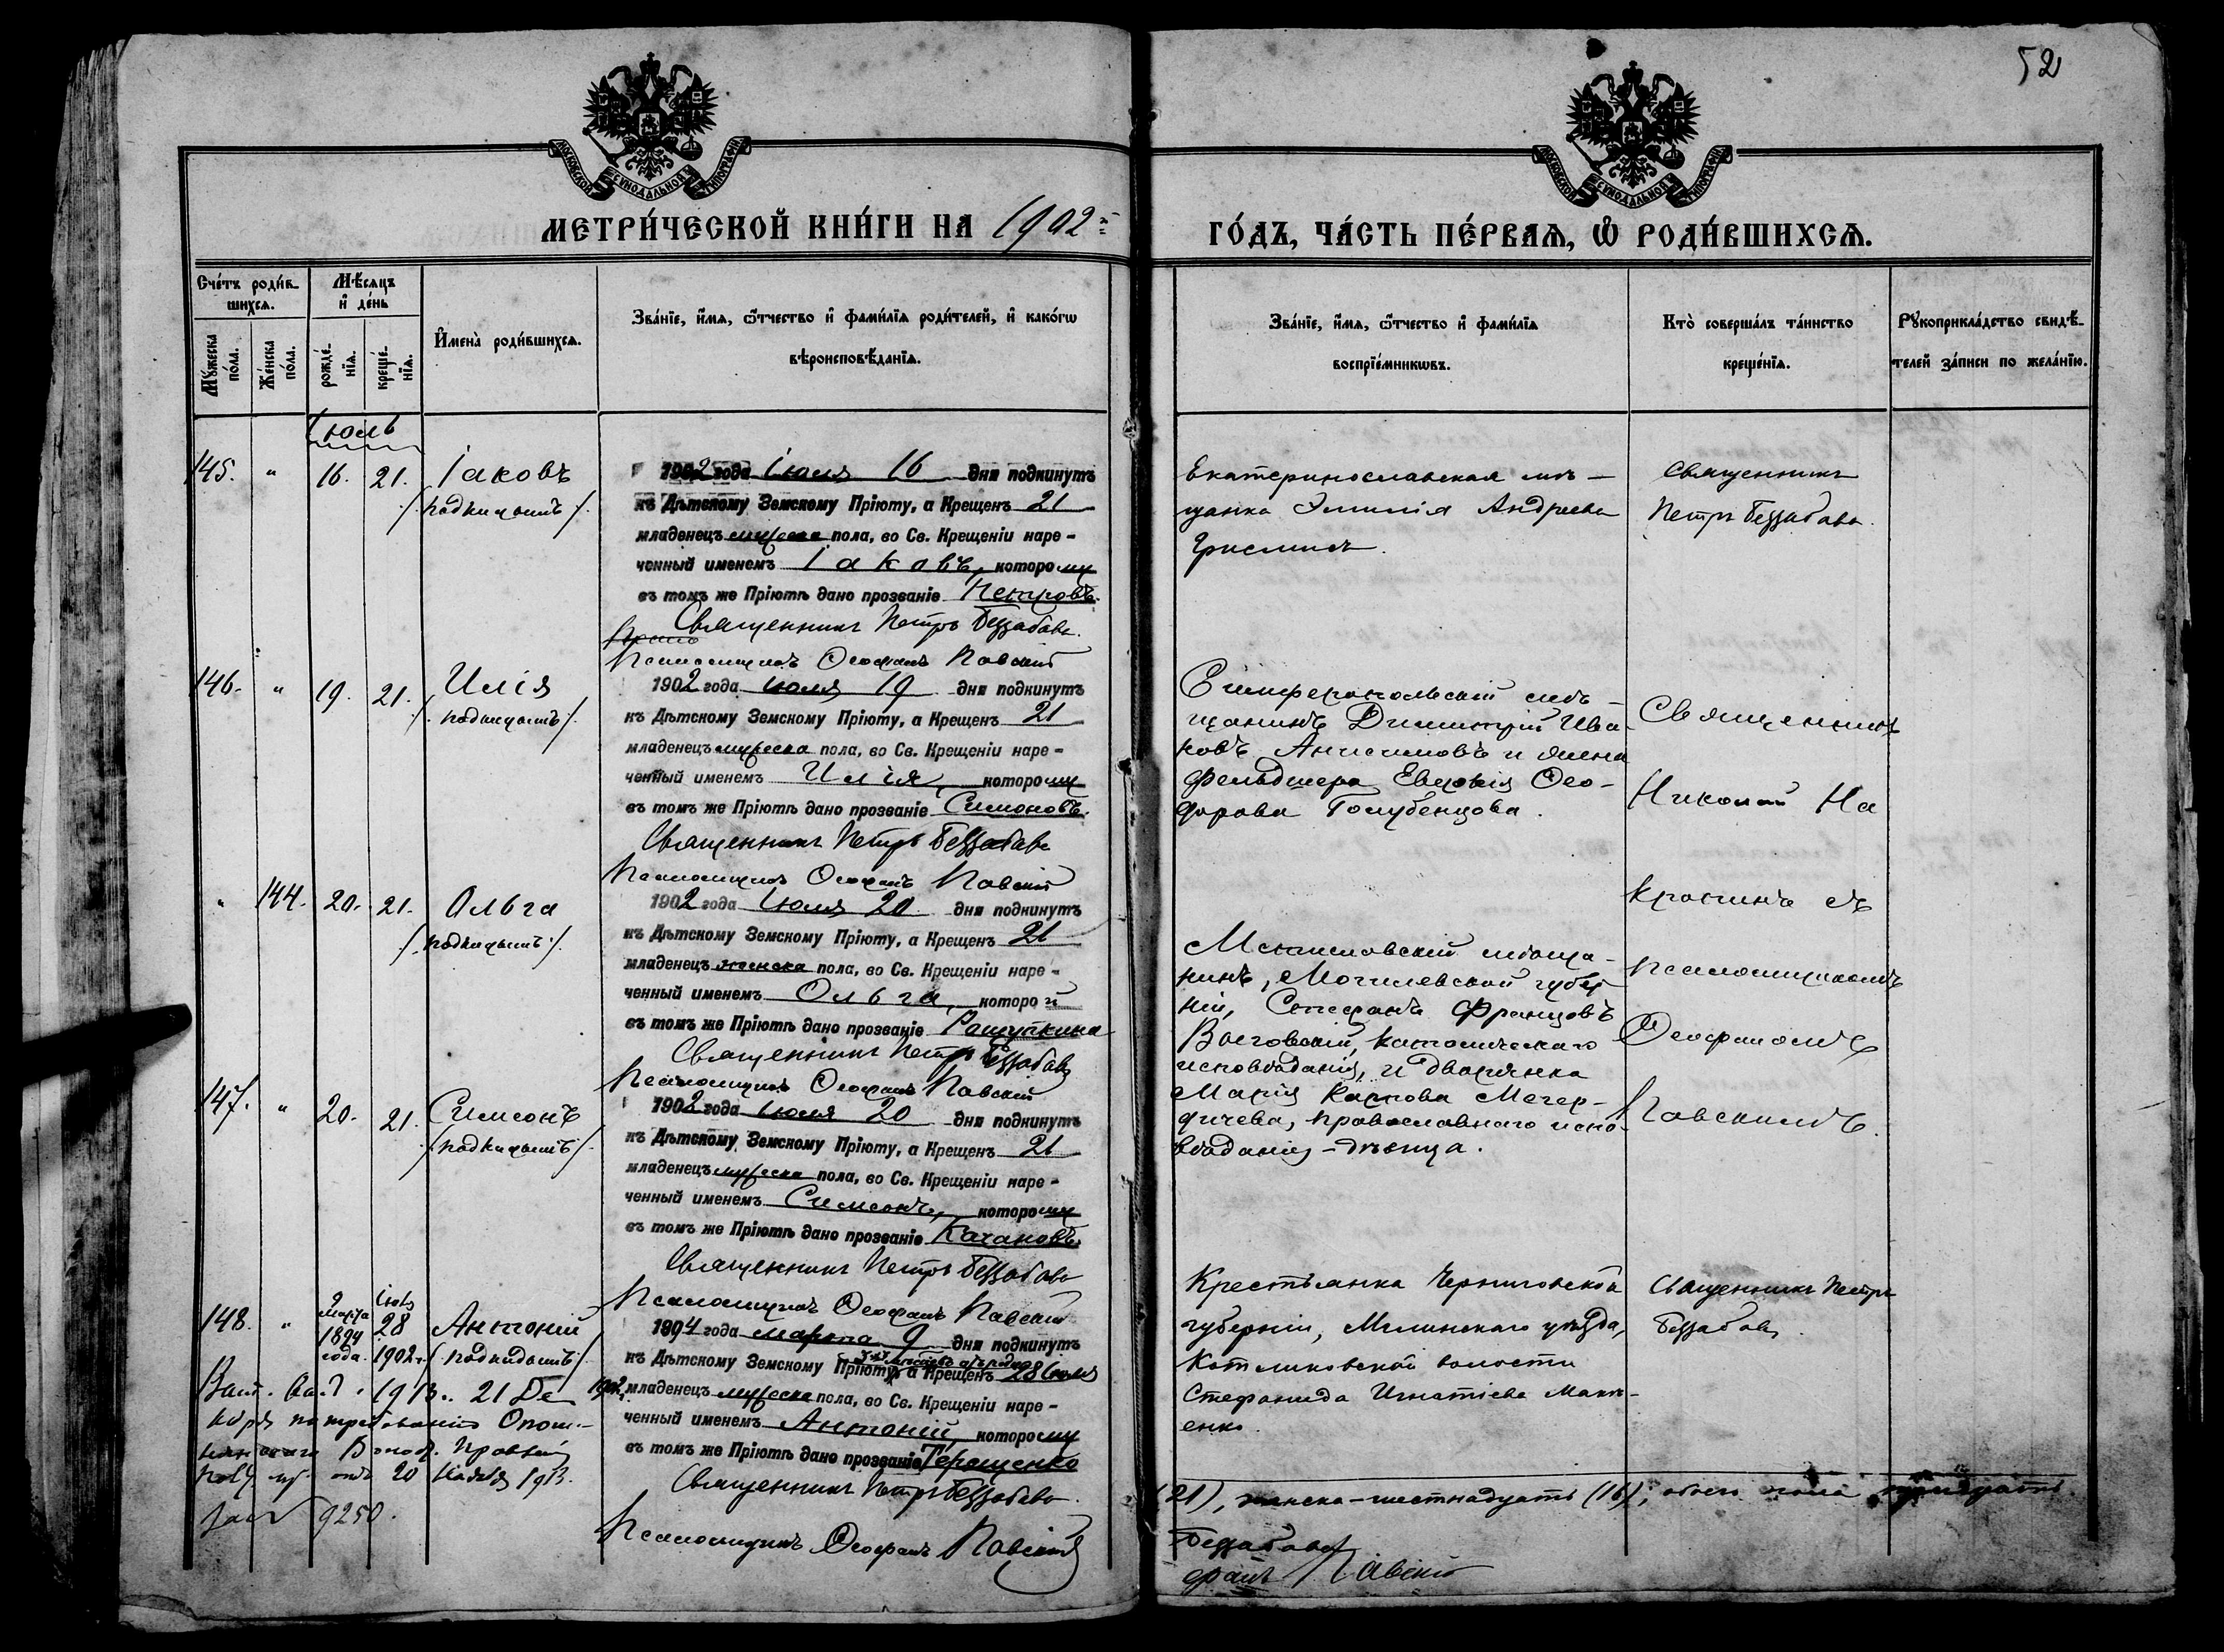 52
МОСКОВСКОЙ СѴНОДАЛЬНОЙ ТИПОГРАФІИ
МОСКОВСКОЙ СѴНОДАЛЬНОЙ ТИПОГРАФІИ
МЕТРИ́ЧЕСКОЙ КНИ́ГИ НА 1902й
ГО́ДЪ, ЧА́СТЬ ПЕ́РВАѦ, Ѽ РОДИ́ВШИХСѦ.
Сче́тъ роди́вшихсѧ.
Мѣ́сѧцъ и҆ де́нь
Мꙋ́жеска по́ла.
Же́нска по́ла.
рожде́нїѧ.
креще́нїѧ.
И҆мена̀ роди́вшихсѧ.
Зва́нїе, и҆́мѧ, ѻ҆́тчество и҆ фами́лїѧ роди́телей, и҆ како́гѡ
вѣроисповѣ́данїѧ.
Зва́нїе, и҆́мѧ, ѻ҆́тчество и҆ фами́лїѧ
воспрїе́мникѡвъ.
Кто̀ соверша́лъ та́инство
креще́нїѧ.
Рꙋкоприкла́дство свидѣ́-
телей за́писи по жела́нїю.
Іюль
145. " 16. 21. Іаковъ
/подкидышъ/.
1902 года Іюля 16 дня подкинутъ
къ Дѣтскому Земскому Пріюту, а Крещенъ 21
младенецъ мужеска пола, во Св. Крещеніи наре-
ченный именемъ Іаковъ, которому
въ томъ же Пріютѣ дано прозваніе Петровъ.
Священникъ Петръ Беззабава.
Псаломщикъ Ѳеофанъ Павскій
Екатеринославская мѣ-
щанка Эмилія Андреева
Священникъ
Петръ Беззабава.
146. " 19. 21. Илія
/подкидышъ/.
1902 года Іюля 19 дня подкинутъ
къ Дѣтскому Земскому Пріюту, а Крещенъ 21
младенецъ мужеска пола, во Св. Крещеніи наре-
ченный именемъ Илія, которому
въ томъ же Пріютѣ дано прозваніе Симоновъ.
Священникъ Петръ Беззабава
Псаломщикъ Ѳеофанъ Павскій
Симферопольскій мѣ-
щанинъ Димитрій Ива-
новъ Анисимовъ и жена
фельдшера Евдокія Ѳео-
дорова Голубенцова.
Священникъ
Николай На
" 144. 20. 21. Ольга
/подкидышъ/.
1902 года Іюля 20 дня подкинутъ
къ Дѣтскому Земскому Пріюту, а Крещенъ 21
младенецъ женска пола, во Св. Крещеніи наре-
ченный именемъ Ольга, которой
въ томъ же Пріютѣ дано прозваніе
Священникъ Петръ Беззабава
Псаломщикъ Ѳеофанъ Павскій
Мстиславскій мѣща-
нинъ, Могилевской губер-
ніи, Стефанъ Францовъ
католическаго
исповѣданія, и дворянка
Марія Карпова
православнаго испо-
вѣданія - дѣвица.
съ
псаломщикомъ
Ѳеофаномъ
Павскимъ.
147. " 20. 21. Симеонъ
/подкидышъ/.
1902 года Іюля 20 дня подкинутъ
къ Дѣтскому Земскому Пріюту, а Крещенъ 21
младенецъ мужеска пола, во Св. Крещеніи наре-
ченный именемъ Симеонъ, которому
въ томъ же Пріютѣ дано прозваніе Качановъ.
Священникъ Петръ Беззабава
Псаломщикъ Ѳеофанъ Павскій
148. " 9 марта 1894 года. Іюля 28 1902 г. Антоній
/подкидышъ/.
1894 года марта 9 дня подкинутъ
къ Дѣтскому Земскому Пріюту, а Крещенъ 28 Іюля
1902 г. младенецъ мужеска пола, во Св. Крещеніи наре-
ченный именемъ Антоній, которому
въ томъ же Пріютѣ дано прозваніе Терещенко
Священникъ Петръ Беззабава.
Псаломщикъ Ѳеофанъ Павскій
Крестьянка Черниговской
губерніи, Мглинскаго уѣзда,
волости
Стефанида Игнатіева
Священникъ Петръ
Беззабава.
1913 г. 21 Де
кабря по требованію
отъ 20 Ноября 1913.
9250.
(21), женска - шестнадцать (16), обоего пола
Беззабава
фанъ Павскій